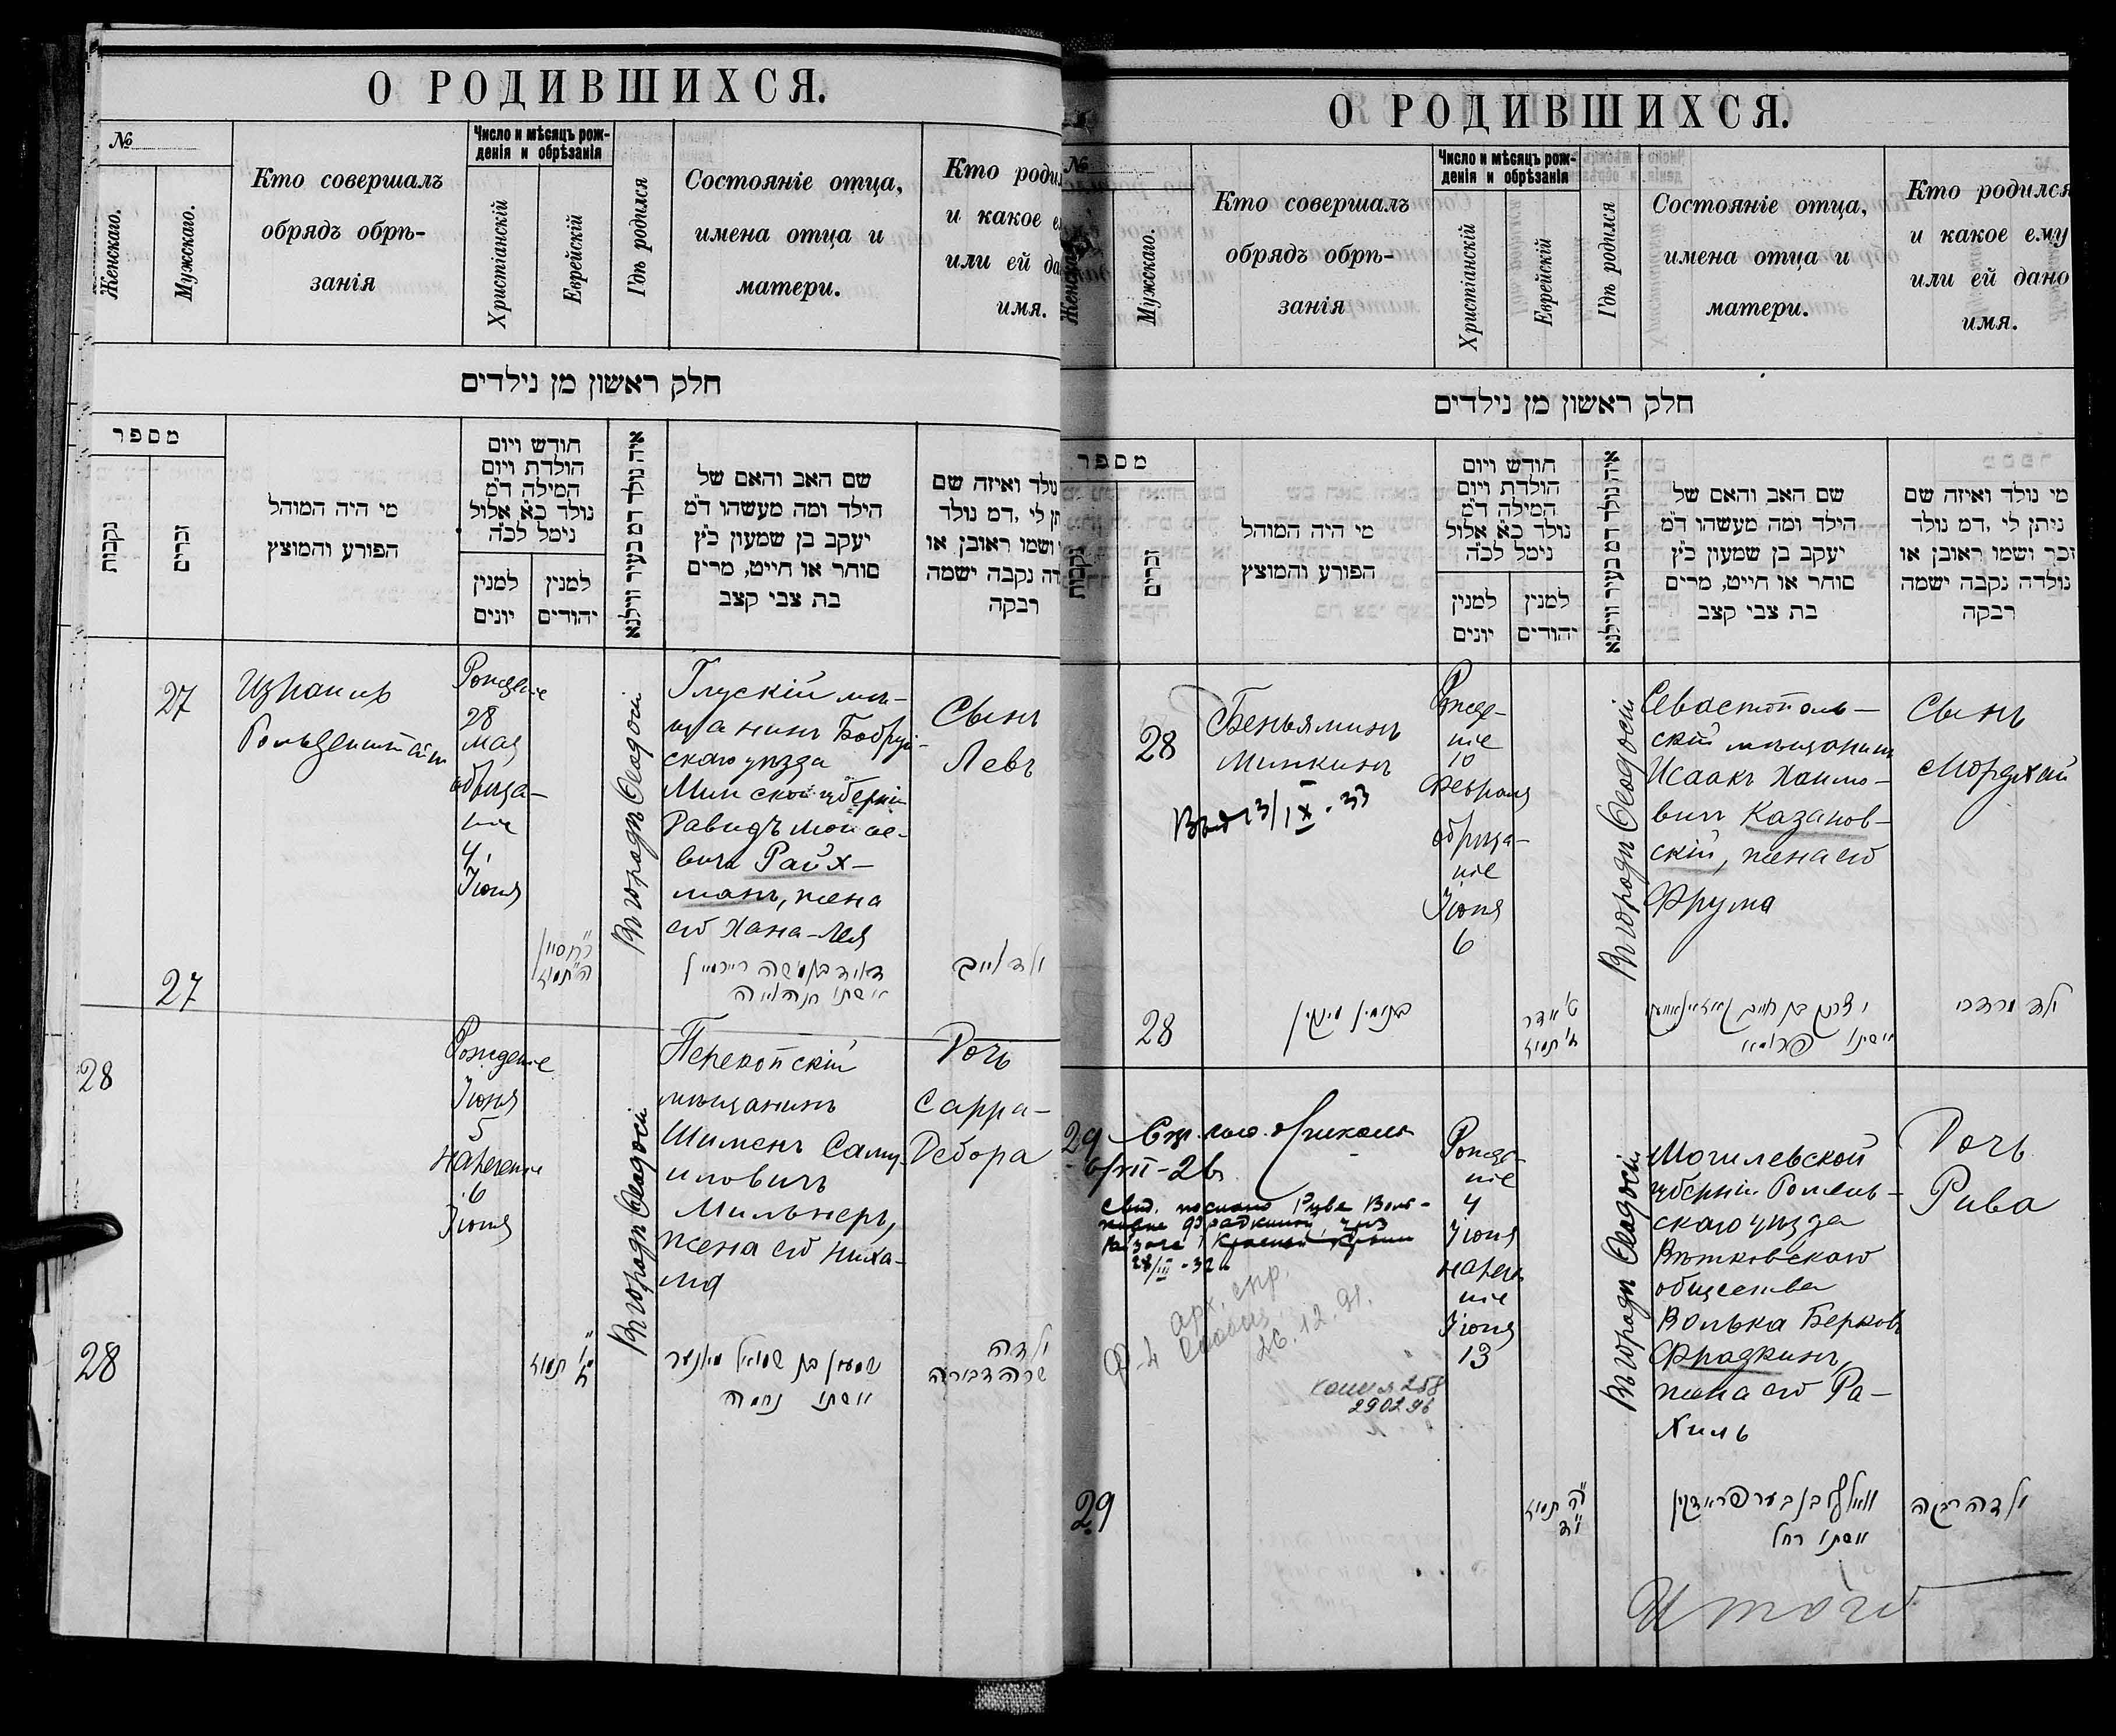 О РОДИВШИХСЯ.
№
Женскаго.
Мужскаго.
Кто совершалъ
обрядъ обрѣ-
занія
Число и мѣсяцъ рож-
денія и обрѣзанія
Христіанскій
Еврейскій
Гдѣ родился
Состояніе отца,
имена отца и
матери.
Кто родил
и какое е
или ей да
имя.
חלק ראשון מן נילדים
מספר
נקבות
זכרים
מי היה המוהל
הפורע והמוצץ
חודש ויום
הולדת ויום
המילה ד״מ
נולד כ״א אלול
נימל לכ״ה
למנין
יונים
למנין
יהודים
איה נולד דמ בעיר ווילנא
שם האב והאם של
הילד ומה מעשהו ד״מ
יעקב בן שמעון כ״ץ
סוחר או חייט, מרים
בת צבי קצב
נולד ואיזה שם
תן לי ,דמ נולד
ושמו ראובן או
דה נקבה ישמה
רבקה
27
Израиль
Гольденштейн
Рожденіе
28
мая
обрѣза-
ніе
4
Іюня
Въ городѣ Ѳеодосіи
Глускій мѣ-
щанинъ Бобруй-
скаго уѣзда
Минской губерніи
Давидъ Моисе-
вичъ Райх-
манъ, жена
его Хана-Лея
Сынъ
Левъ
27
דוד בן משה רייכמאן
אשתו חנה לאה
ילד לייב
28
Рожденіе
Іюня
5
нареченіе
6
Іюня
Въ городѣ Ѳеодосіи
Перекопскій
мѣщанинъ
Шименъ Саму-
иловичъ
Мильнеръ,
жена его Неха-
ма
Дочь
Сарра-
Дебора
28
תמוז
שמעון בן שמואל מילנער
אשתו נחמה
ילדה
שרה דבורה
О РОДИВШИХСЯ.
№
Женскаго
Мужскаго.
Кто совершалъ
обрядъ обрѣ-
занія
Число и мѣсяцъ рож-
денія и обрѣзанія
Христіанскій
Еврейскій
Гдѣ родился
Состояніе отца,
имена отца и
матери.
Кто родился
и какое ему
или ей дано
имя.
חלק ראשון מן נילדים
מספר
נקבות
זכרים
מי היה המוהל
הפורע והמוצץ
חודש ויום
הולדת ויום
המילה ד״מ
נולד כ״א אלול
נימל לכ״ה
למנין
יונים
למנין
יהודים
איה נולד דמ בעיר ווילנא
שם האב והאם של
הילד ומה מעשהו ד״מ
יעקב בן שמעון כ״ץ
סוחר או חייט, מרים
בת צבי קצב
מי נולד ואיזה שם
ניתן לי ,דמ נולד
זכר ושמו ראובן או
נולדה נקבה ישמה
רבקה
28
Беньяминъ
Минкинъ
13/IX-33
Рожде-
ніе
10
Февраля
обрѣза-
ніе
Іюня
6
Въ городѣ Ѳеодосіи
Севастополь-
скій мѣщанинъ
Исаакъ Хаимо-
вичъ Казанов-
скій, жена его
Фрума
Сынъ
Мордхай
28
בנימין מינקין
ט׳ אדר
תמוז
יצחק בן חיים קאזאנאווסקי
אשתו פרומא
ילד מרדכי
29
6/XII-26
Свид. послано Риве Воль-
28/III-32
арх. спр.
26.12.91.
копия 258
290296
Рожде-
ніе
4
Іюня
нарече-
ніе
Іюня
13
Въ городѣ Ѳеодосіи
Могилевской
губерніи Гомель-
скаго уѣзда
Вѣтковскаго
общества
Волька Берков
Фрадкинъ,
жена его Ра-
хиль
Дочь
Рива
29
תמוז
וואלף בן בער פראדקין
אשתו רחל
ילדה רבקה
Итого